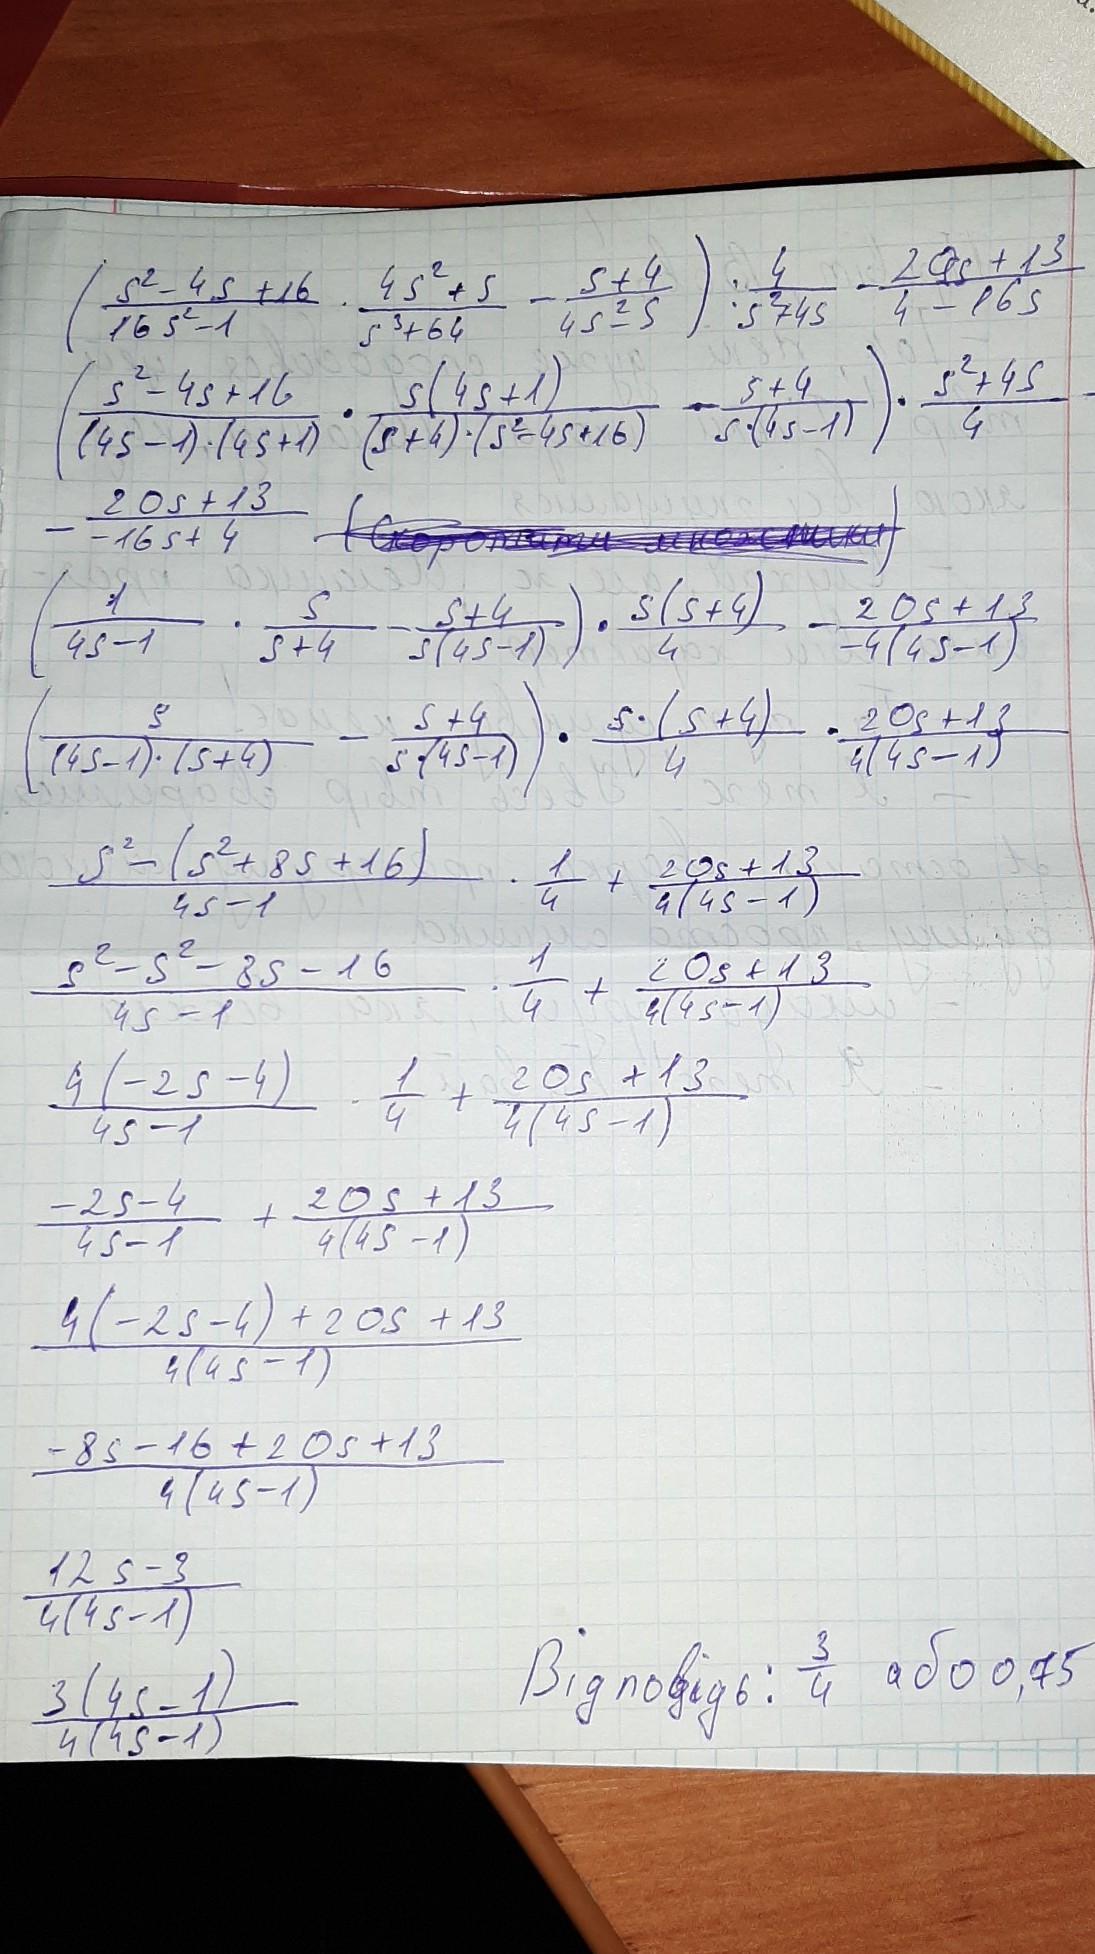 (s²-4s+16/16s²-1 · 4s²+s/s³+64 - s+4/4s²-s) : 4/s²+4s - 20s+13/4-16s
(s²-4s+16/(4s-1)·(4s+1) · s(4s+1)/(s+4)·(s²-4s+16) - s+4/s·(4s-1)) · s²+4s/4 -
- 20s+13/-16s+4 (скоротити множники)
(1/4s-1 · s/s+4 - s+4/s(4s-1)) · s(s+4)/4 - 20s+13/-4(4s-1)
(s/(4s-1)·(s+4) - s+4/s·(4s-1)) · s·(s+4)/4 · 20s+13/4(4s-1)
s²-(s²+8s+16)/4s-1 · 1/4 + 20s+13/4(4s-1)
s²-s²-8s-16/4s-1 · 1/4 + 20s+13/4(4s-1)
4(-2s-4)/4s-1 · 1/4 + 20s+13/4(4s-1)
-2s-4/4s-1 + 20s+13/4(4s-1)
4(-2s-4)+20s+13/4(4s-1)
-8s-16+20s+13/4(4s-1)
12s-3/4(4s-1)
3(4s-1)/4(4s-1)
Відповідь: 3/4 або 0,75